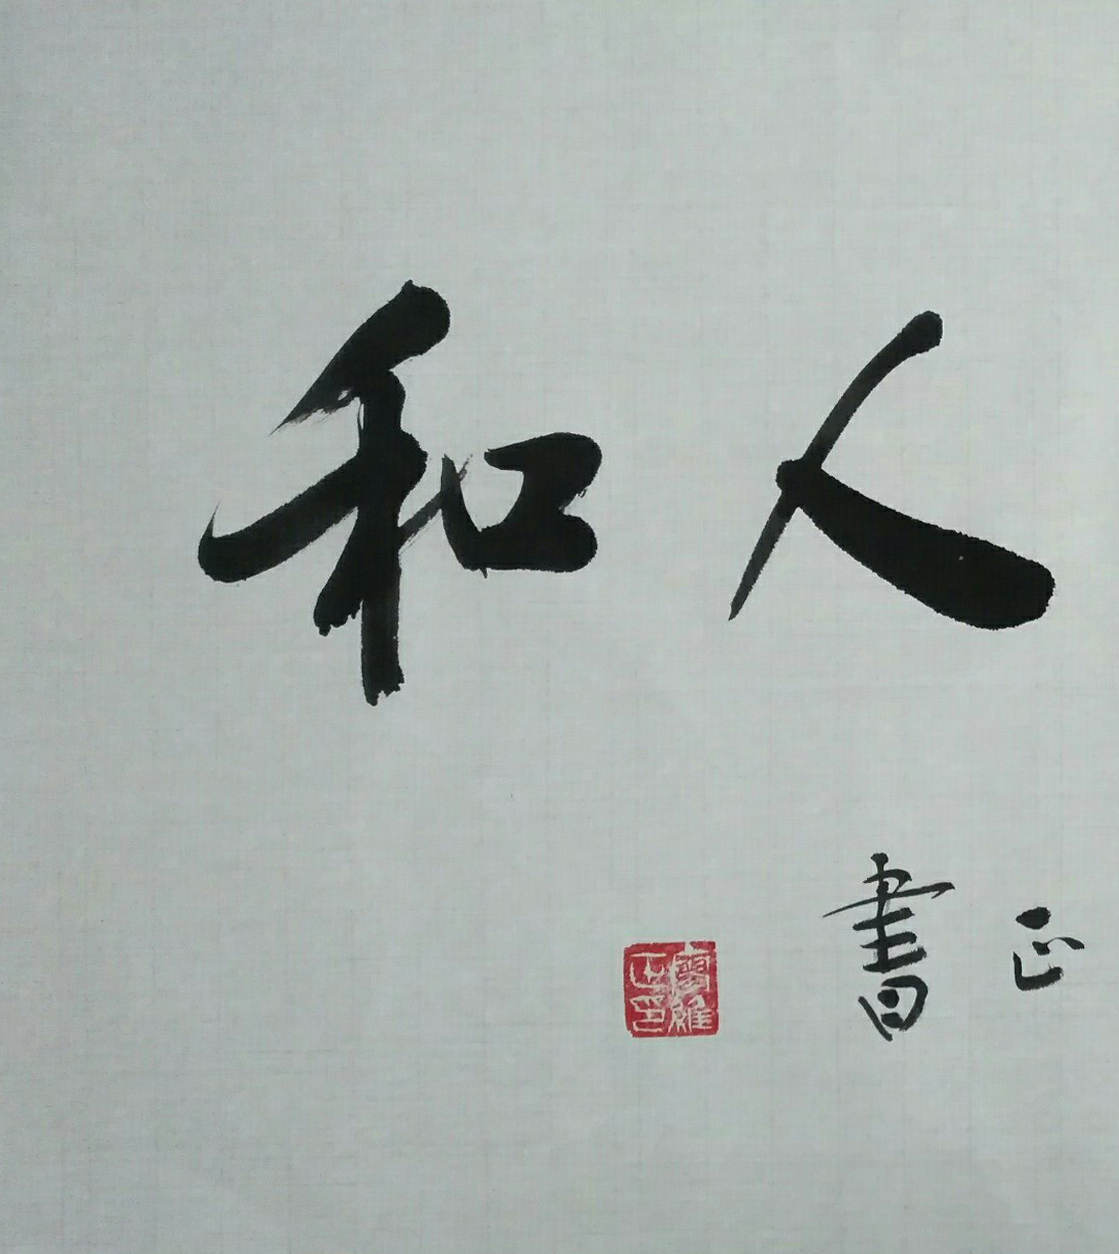 人和
正
書